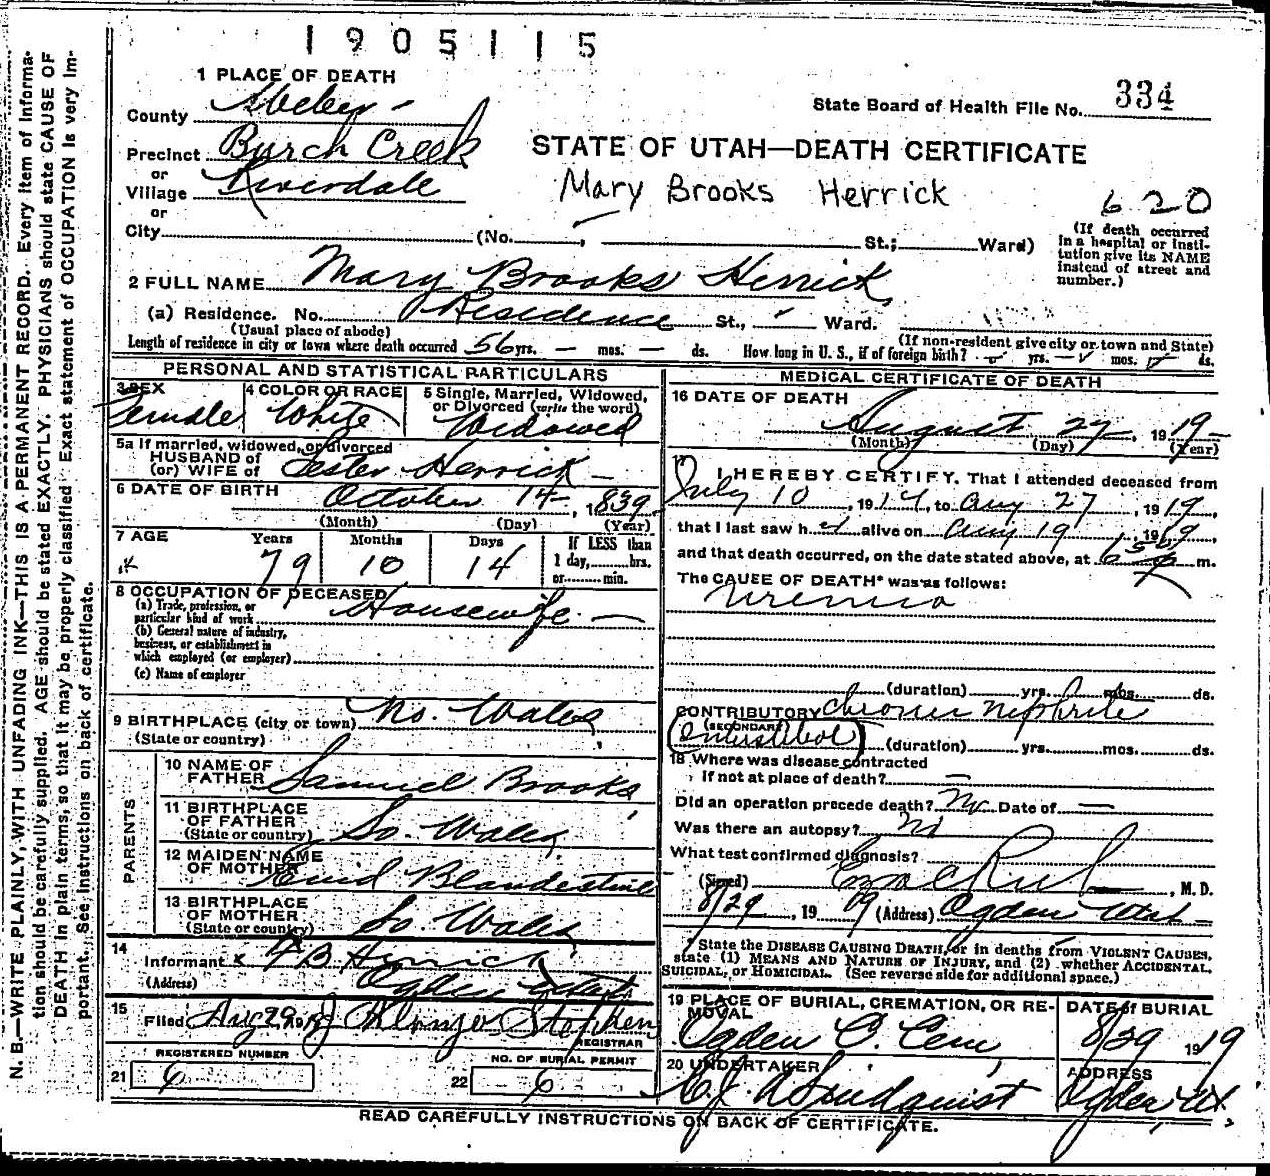 1905115
1 PLACE OF DEATH
County Weber
State Board of Health File No. 334
Precinct Burch Creek
or
Village Riverdale
or
STATE OF UTAH—DEATH CERTIFICATE
Mary Brooks Herrick
620
City (No. St.; Ward)
(If death occurred in a hospital or institution give its NAME instead of street and number.)
2 FULL NAME Mary Brooks Herrick
(a) Residence. No. Residence St., Ward.
(Usual place of abode)
(If non-resident give city or town and State)
Length of residence in city or town where death occurred 56 yrs. — mos. — ds. How long in U. S., if of foreign birth? yrs. mos. ds.
PERSONAL AND STATISTICAL PARTICULARS
3 SEX Female
4 COLOR OR RACE White
5 Single, Married, Widowed, or Divorced (write the word) Widowed
5a If married, widowed, or divorced
HUSBAND of
(or) WIFE of Lester Herrick —
6 DATE OF BIRTH October 14—, 1839
(Month) (Day) (Year)
7 AGE Years Months Days If LESS than
79 10 14 1 day, hrs.
or min.
8 OCCUPATION OF DECEASED
(a) Trade, profession, or particular kind of work Housewife —
(b) General nature of industry, business, or establishment in which employed (or employer)
(c) Name of employer
9 BIRTHPLACE (city or town) No. Wales
(State or country)
PARENTS
10 NAME OF FATHER Samuel Brooks
11 BIRTHPLACE OF FATHER (State or country) So. Wales
12 MAIDEN NAME OF MOTHER Enid Blandestine
13 BIRTHPLACE OF MOTHER (State or country) So. Wales
14
Informant x F B Herrick
(Address) Ogden Utah
15
Filed Aug 29 1919 J Alonzo Stephen
REGISTRAR
REGISTERED NUMBER NO. OF BURIAL PERMIT
21 6 22 6
MEDICAL CERTIFICATE OF DEATH
16 DATE OF DEATH
August 27, 1919
(Month) (Day) (Year)
17
I HEREBY CERTIFY, That I attended deceased from
July 10, 1914, to Aug 27, 1919,
that I last saw her alive on Aug 19, 1919,
and that death occurred, on the date stated above, at m.
The CAUSE OF DEATH* was as follows:
Uremia
(duration) yrs. mos. ds.
CONTRIBUTORY Chronic nephritis
(SECONDARY)
(Interstitial) (duration) yrs. mos. ds.
18 Where was disease contracted
if not at place of death? —
Did an operation precede death? No Date of —
Was there an autopsy? No
What test confirmed diagnosis?
(Signed) , M. D.
8/29, 1919 (Address) Ogden Utah
* State the DISEASE CAUSING DEATH, or in deaths from VIOLENT CAUSES, state (1) MEANS AND NATURE OF INJURY, and (2) whether ACCIDENTAL, SUICIDAL, or HOMICIDAL. (See reverse side for additional space.)
19 PLACE OF BURIAL, CREMATION, OR REMOVAL DATE of BURIAL
Ogden C. Cem, 8/29 1919
20 UNDERTAKER ADDRESS
C. J. A Lindquist Ogden, Ut.
READ CAREFULLY INSTRUCTIONS ON BACK OF CERTIFICATE.
N. B.—WRITE PLAINLY, WITH UNFADING INK—THIS IS A PERMANENT RECORD. Every item of information should be carefully supplied. AGE should be stated EXACTLY. PHYSICIANS should state CAUSE OF DEATH in plain terms, so that it may be properly classified. Exact statement of OCCUPATION is very important. See instructions on back of certificate.